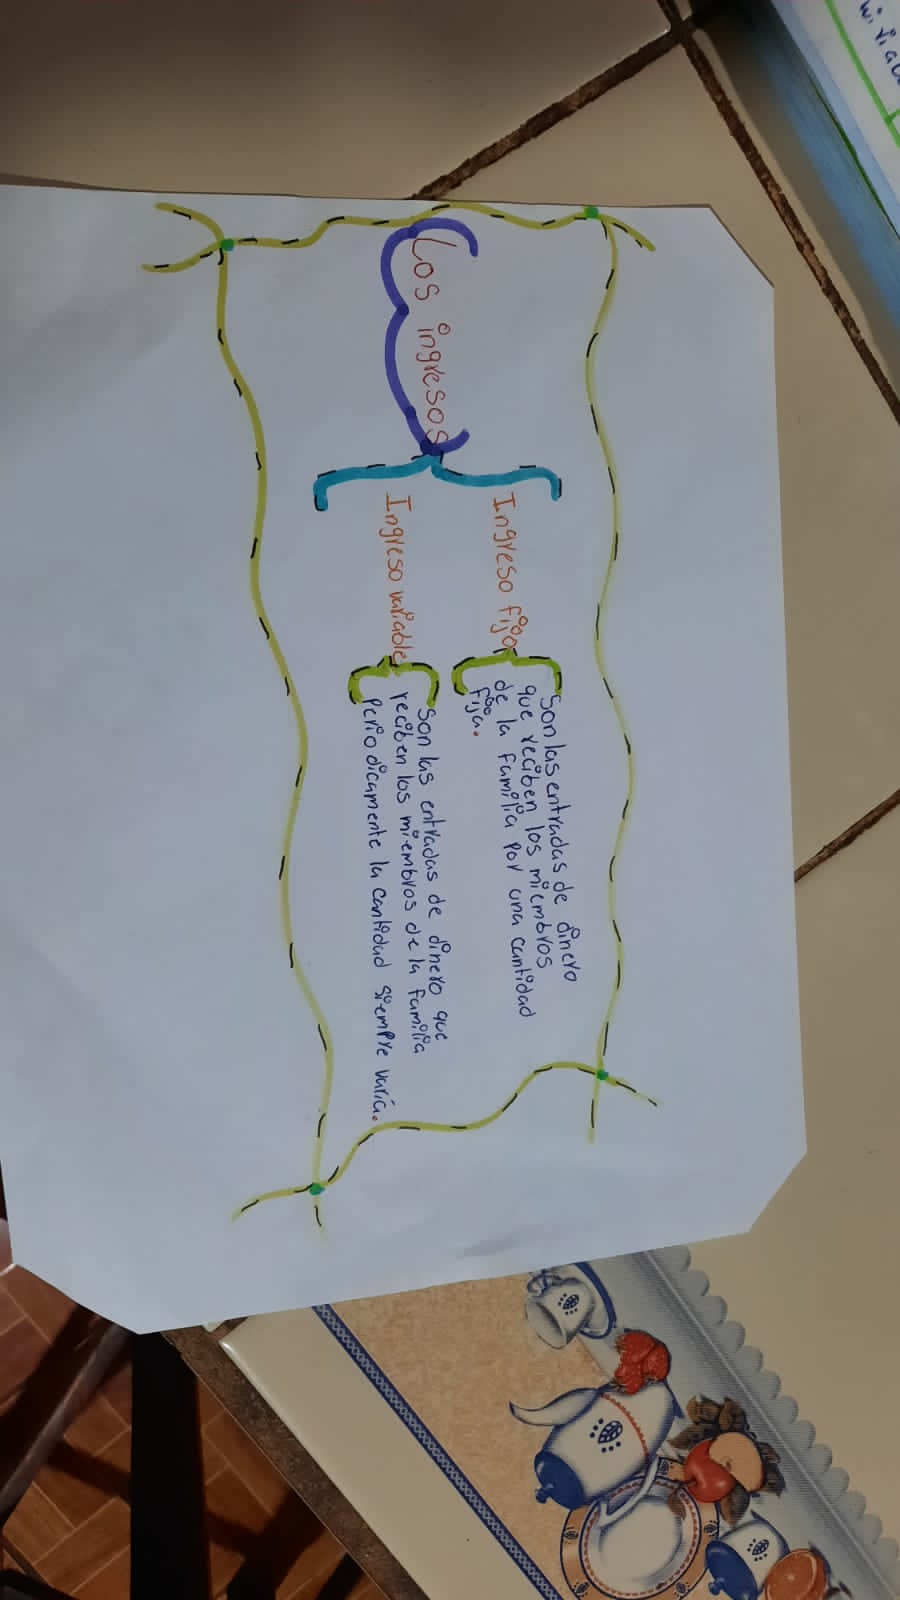 Los ingresos
Ingreso fijo
Son las entradas de dinero
que reciben los miembros
de la familia por una cantidad
fija.
Ingreso variable
Son las entradas de dinero que
reciben los miembros de la familia
periodicamente la cantidad siempre varía.